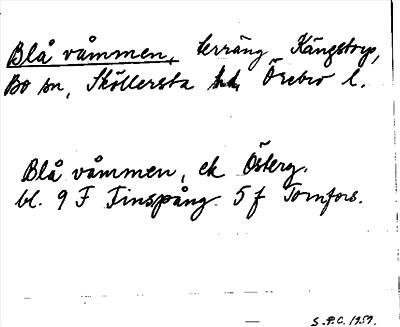 Blå våmmen, terräng Kångstorp,
Bo sn, Sköllersta hd, Örebro l.
Blå våmmen, ek Österg.
bl. 9 F Finspång 5 f Tornfors.
S.P.C. 1959.